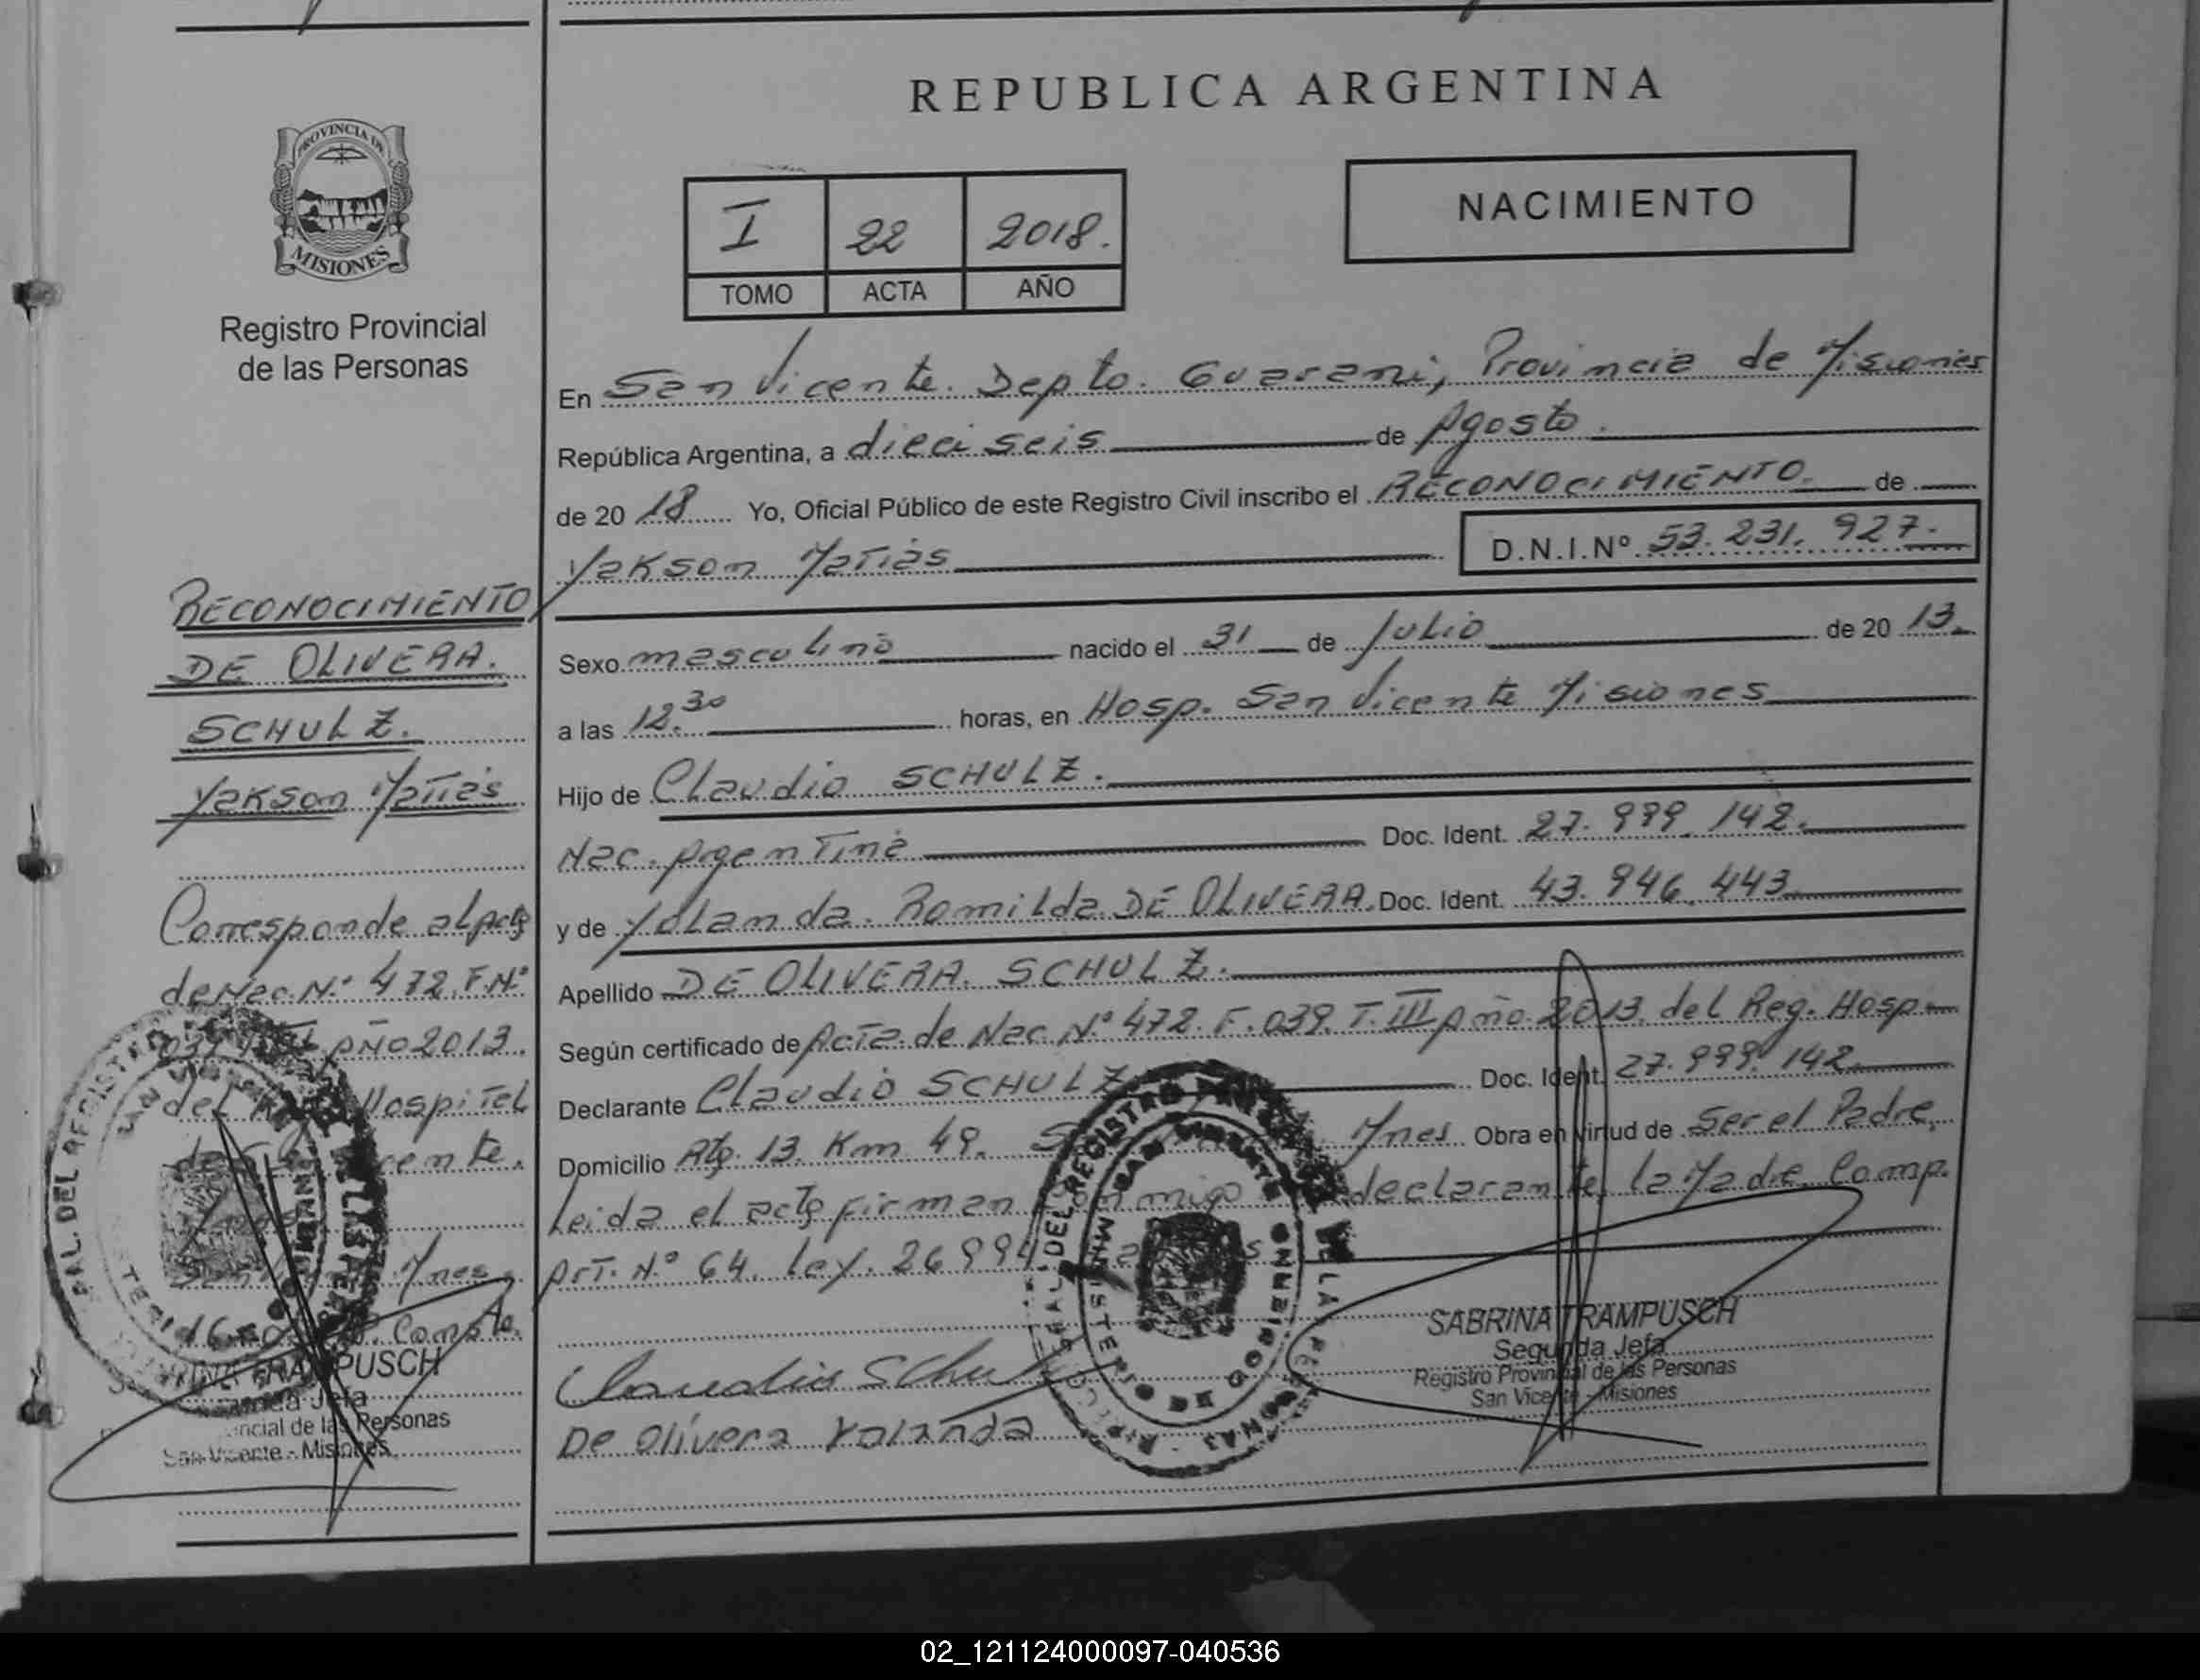 REPUBLICA ARGENTINA
PROVINCIA DE
MISIONES
Registro Provincial
de las Personas
I 22 2018.
TOMO ACTA AÑO
NACIMIENTO
En San Vicente. Depto. Guarani, Provincia de Misiones
República Argentina, a dieci seis de Agosto.
de 20 18 Yo, Oficial Público de este Registro Civil inscribo el RECONOCIMIENTO. de
Yakson Matias D.N.I.Nº 53.231.927.
Sexo masculino nacido el 31 de Julio de 20 13.
a las 12.30 horas, en Hosp. San Vicente Misiones
Hijo de Claudio SCHULZ.
Nac. Argentina Doc. Ident. 27.999.142.
y de Yolanda. Romilda DE OLIVERA. Doc. Ident. 43.946.443
Apellido DE OLIVERA. SCHULZ.
Según certificado de Acta de Nac. Nº 472. F. 039. T. III Año 2013. del Reg. Hosp.
Declarante Claudio SCHULZ Doc. Ident. 27.999.142
Domicilio Rta. 13. Km 49. Ynes Obra en virtud de Ser el Padre,
Leida el acta firman conmigo declarante, la Madre, Comp.
Art. Nº 64. Ley. 26994
Claudio Schu
De Olivera Yolanda
SABRINA TRAMPUSCH
Segunda Jefa
Registro Provincial de las Personas
San Vicente - Misiones
RECONOCIMIENTO
DE OLIVERA.
SCHULZ.
Yakson Matias
Corresponde al Acta
de Nac. N.º 472. F. N.º
039 AÑO 2013.
del Hospital
Ynes
PUSCH
Jefa
de las Personas
San Vicente - Misiones
02_121124000097-040536